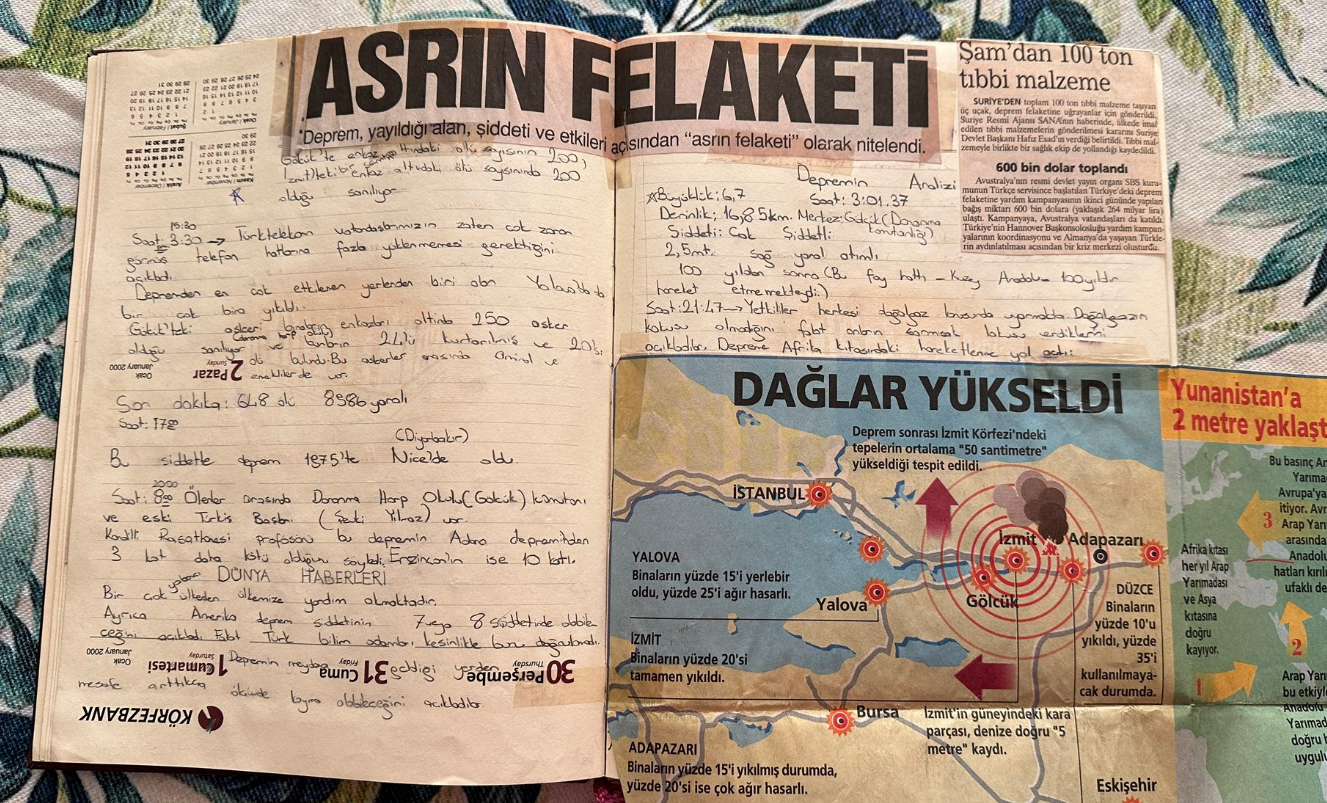 ASRIN FELAKETİ
"Deprem, yayıldığı alan, şiddeti ve etkileri açısından “asrın felaketi” olarak nitelendi.
Şam'dan 100 ton
tıbbi malzeme
SURİYE'DEN toplam 100 ton tıbbi malzeme taşıyan
üç uçak, deprem felaketine uğrayanlar için gönderildi.
Suriye Resmi Ajansı SANA'nın haberinde, ülkede imal
edilen tıbbi malzemelerin gönderilmesi kararını Suriye
Devlet Başkanı Hafız Esad'ın verdiği belirtildi. Tıbbi mal-
zemeyle birlikte bir sağlık ekip de yollandığı kaydedildi.
600 bin dolar toplandı
Avustralya'nın resmi devlet yayın organı SBS kuru-
munun Türkçe servisince başlatılan Türkiye'deki deprem
felaketine yardım kampanyasının ikinci gününde yapılan
bağış miktarı 600 bin dolara (yaklaşık 264 milyar lira)
ulaştı. Kampanyaya, Avustralya vatandaşları da katıldı.
Türkiye'nin Hannover Başkonsolosluğu yardım kampan-
yalarının koordinasyonu ve Almanya'da yaşayan Türkle-
rin aydınlatılması açısından bir kriz merkezi oluşturdu.
Gölcük'te enkaz altındaki ölü sayısının 200,
İzmit'teki enkaz altındaki ölü sayısınında 200
olduğu sanılıyor
15:30
Saat: 3:30 → Türktelekom vatandaşlarımızın zaten çok zarar
görmüş telefon hatlarına fazla yüklenmemesi gerektiğini
açıkladı.
Depremden en çok etkilenen yerlerden biri olan Yalova'da da
bir çok bina yıkıldı.
Gölcük'teki askeri enkazları altında 250 asker
olduğu sanılıyor ve bunların kurtarılmış ve 20 si
ölü bulundu. Bu askerler arasında Amiral ve
emekliler de var.
2 Pazar
Sunday
Ocak
January 2000
Son dakika: 648 ölü 8986 yaralı
Saat: 17
(Diyarbakır)
Bu şiddetle deprem 1975'te Nice'de oldu.
20:00
Saat: 8 Ölenler arasında Donanma Harp Okulu (Gölcük) komutanı
ve eski Türkiş Başkanı (Şevki Yılmaz) var.
Kandilli Rasathanesi profesörü bu depremin Adana depreminden
3 kat daha kötü olduğunu söyledi. Erzincan'ın ise 10 katı.
DÜNYA HABERLERİ
Bir çok yabancı ülkeden ülkemize yardım akmaktadır.
Ayrıca Amerika deprem şiddetinin 7 veya 8 şiddetinde olabile
ceğini açıkladı. Fakat Türk bilim adamları kesinlikle bunu doğrulamadı.
Depremin meydana geldiği yerden
mesafe arttıkça ölümde olabileceğini açıkladılar.
30 Perşembe
Thursday
31 Cuma
Friday
1 Cumartesi
Saturday
Ocak
January 2000
KÖRFEZBANK
Depremin Analizi
Büyüklük: 6,7 Saat: 3:01.37
Derinlik: 16,85km. Merkez: Gölcük (Donanma
Komutanlığı)
Şiddeti: Çok Şiddetli
2,5mt. sağ yanal atımlı
100 yıldan sonra (Bu fay hattı - Kuzey Anadolu - 100 yıldır
hareket etmemekteydi.)
Saat: 21:47 → Yetkililer herkesi doğalgaz konusunda uyarmakta. Doğalgazın
kokusu olmadığını fakat onların sarımsak kokusu verdiklerini
açıkladılar. Depreme Afrika kıtasındaki hareketlenme yol açtı:
DAĞLAR YÜKSELDİ
Deprem sonrası İzmit Körfezi'ndeki
tepelerin ortalama "50 santimetre"
yükseldiği tespit edildi.
İSTANBUL
İzmit
Adapazarı
Yalova
Gölcük
YALOVA
Binaların yüzde 15'i yerlebir
oldu, yüzde 25'i ağır hasarlı.
İZMİT
Binaların yüzde 20'si
tamamen yıkıldı.
DÜZCE
Binaların
yüzde 10'u
yıkıldı, yüzde
35'i
kullanılmaya-
cak durumda.
Bursa
İzmit'in güneyindeki kara
parçası, denize doğru "5
metre" kaydı.
ADAPAZARI
Binaların yüzde 15'i yıkılmış durumda,
yüzde 20'si ise çok ağır hasarlı.
Eskişehir
Yunanistan'a
2 metre yaklaşt
Bu basınç Ar
Yarıma
Avrupa'ya
itiyor. Avr
Arap Yarı
arasında
Anadolu
hatları kırılı
ufaklı de
3
Afrika kıtası
her yıl Arap
Yarımadası
ve Asya
kıtasına
doğru
kayıyor.
1
2
Arap Yarı
bu etkiyle
Anadolu
Yarımad
doğru b
uygulu